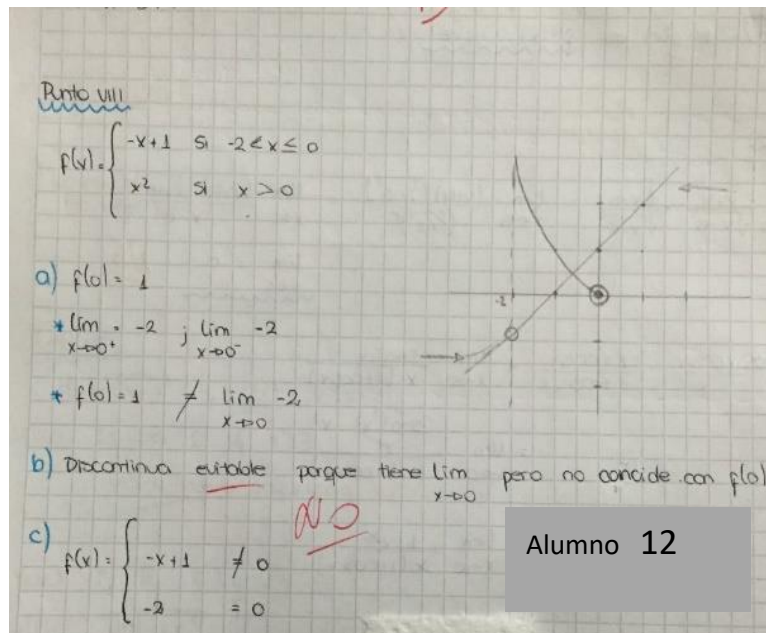 Punto VIII
f(x) = { -x+1 si -2 < x ≤ 0
x² si x > 0
-2
a) f(0) = 1
* lim = -2 ; lim -2
x→0⁺ x→0⁻
* f(0) = 1 ≠ lim -2
x→0
b) Discontinua evitable porque tiene lim pero no concide con f(0)
x→0
NO
c) f(x) = { -x+1 ≠ 0
-2 = 0
Alumno 12